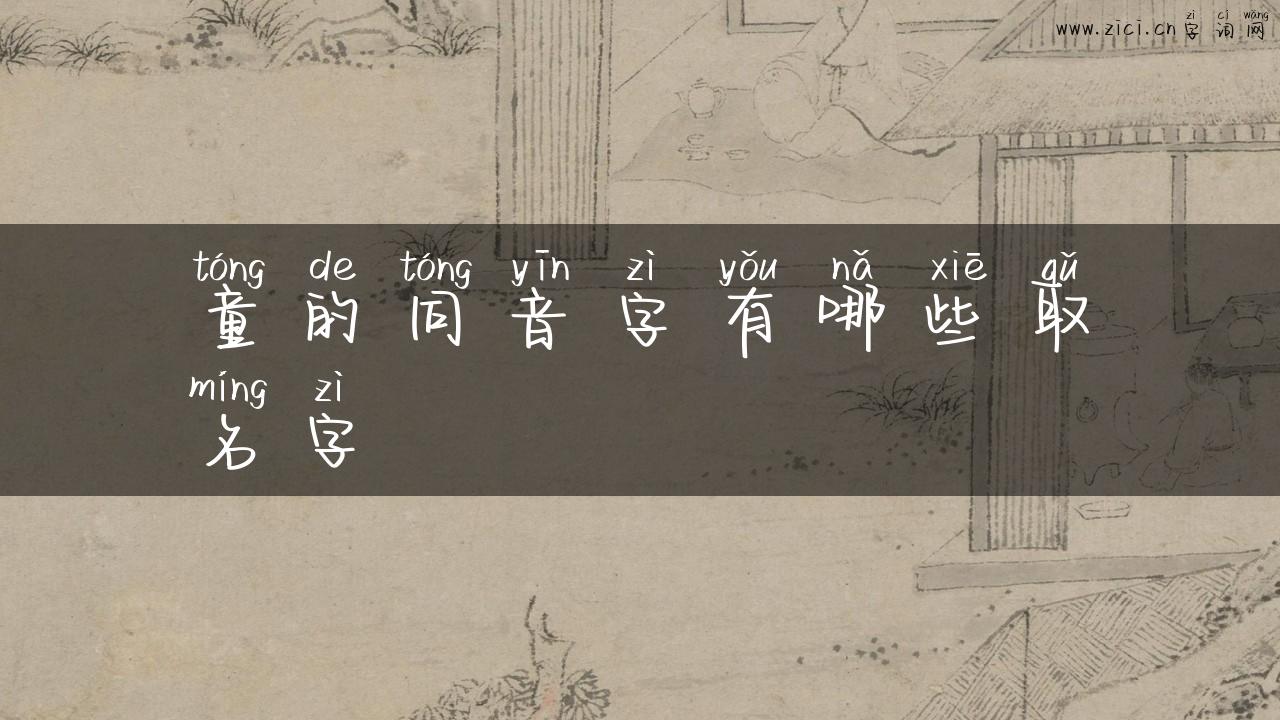 zì cí wǎng
www.zici.cn 字 词 网
tóng de tóng yīn zì yǒu nǎ xiē qǔ
童 的 同 音 字 有 哪 些 取
míng zì
名 字